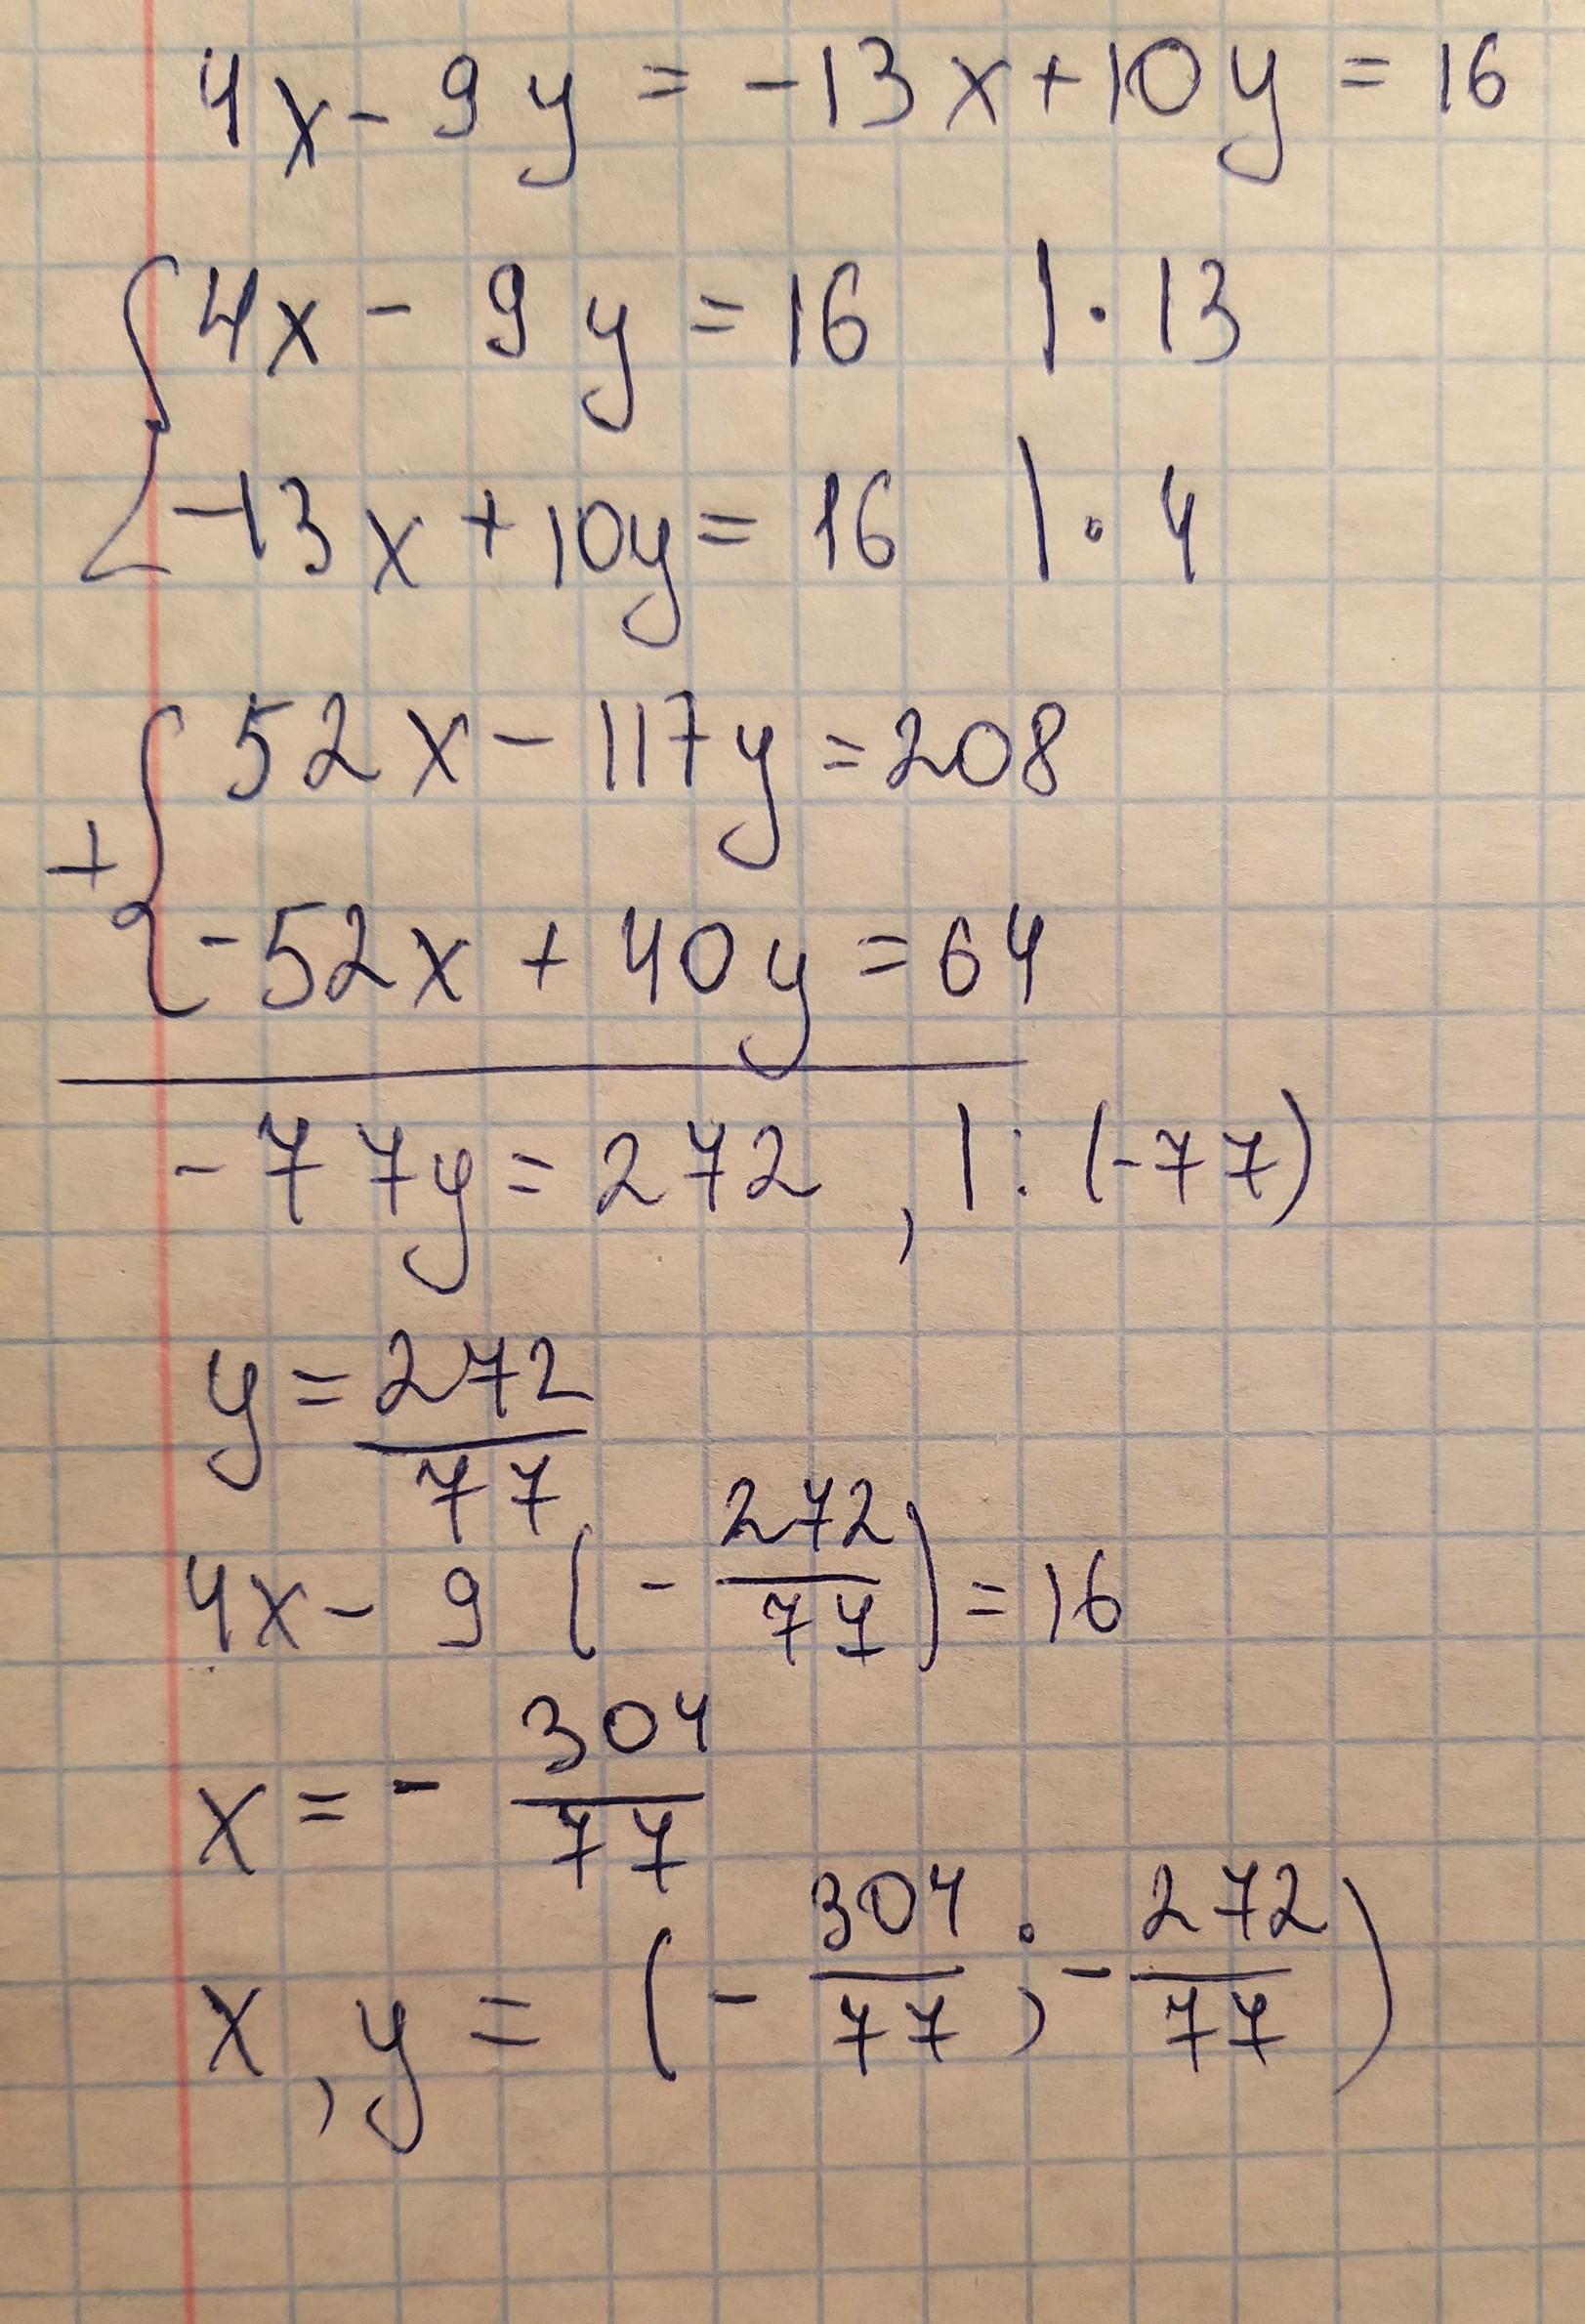 4x - 9y = -13x + 10y = 16
{ 4x - 9y = 16 | · 13
-13x + 10y = 16 | · 4
+ { 52x - 117y = 208
-52x + 40y = 64
-77y = 272 , | : (-77)
y = 272/77
4x - 9 (- 272/77) = 16
x = - 304/77
x, y = (- 304/77 ; - 272/77)